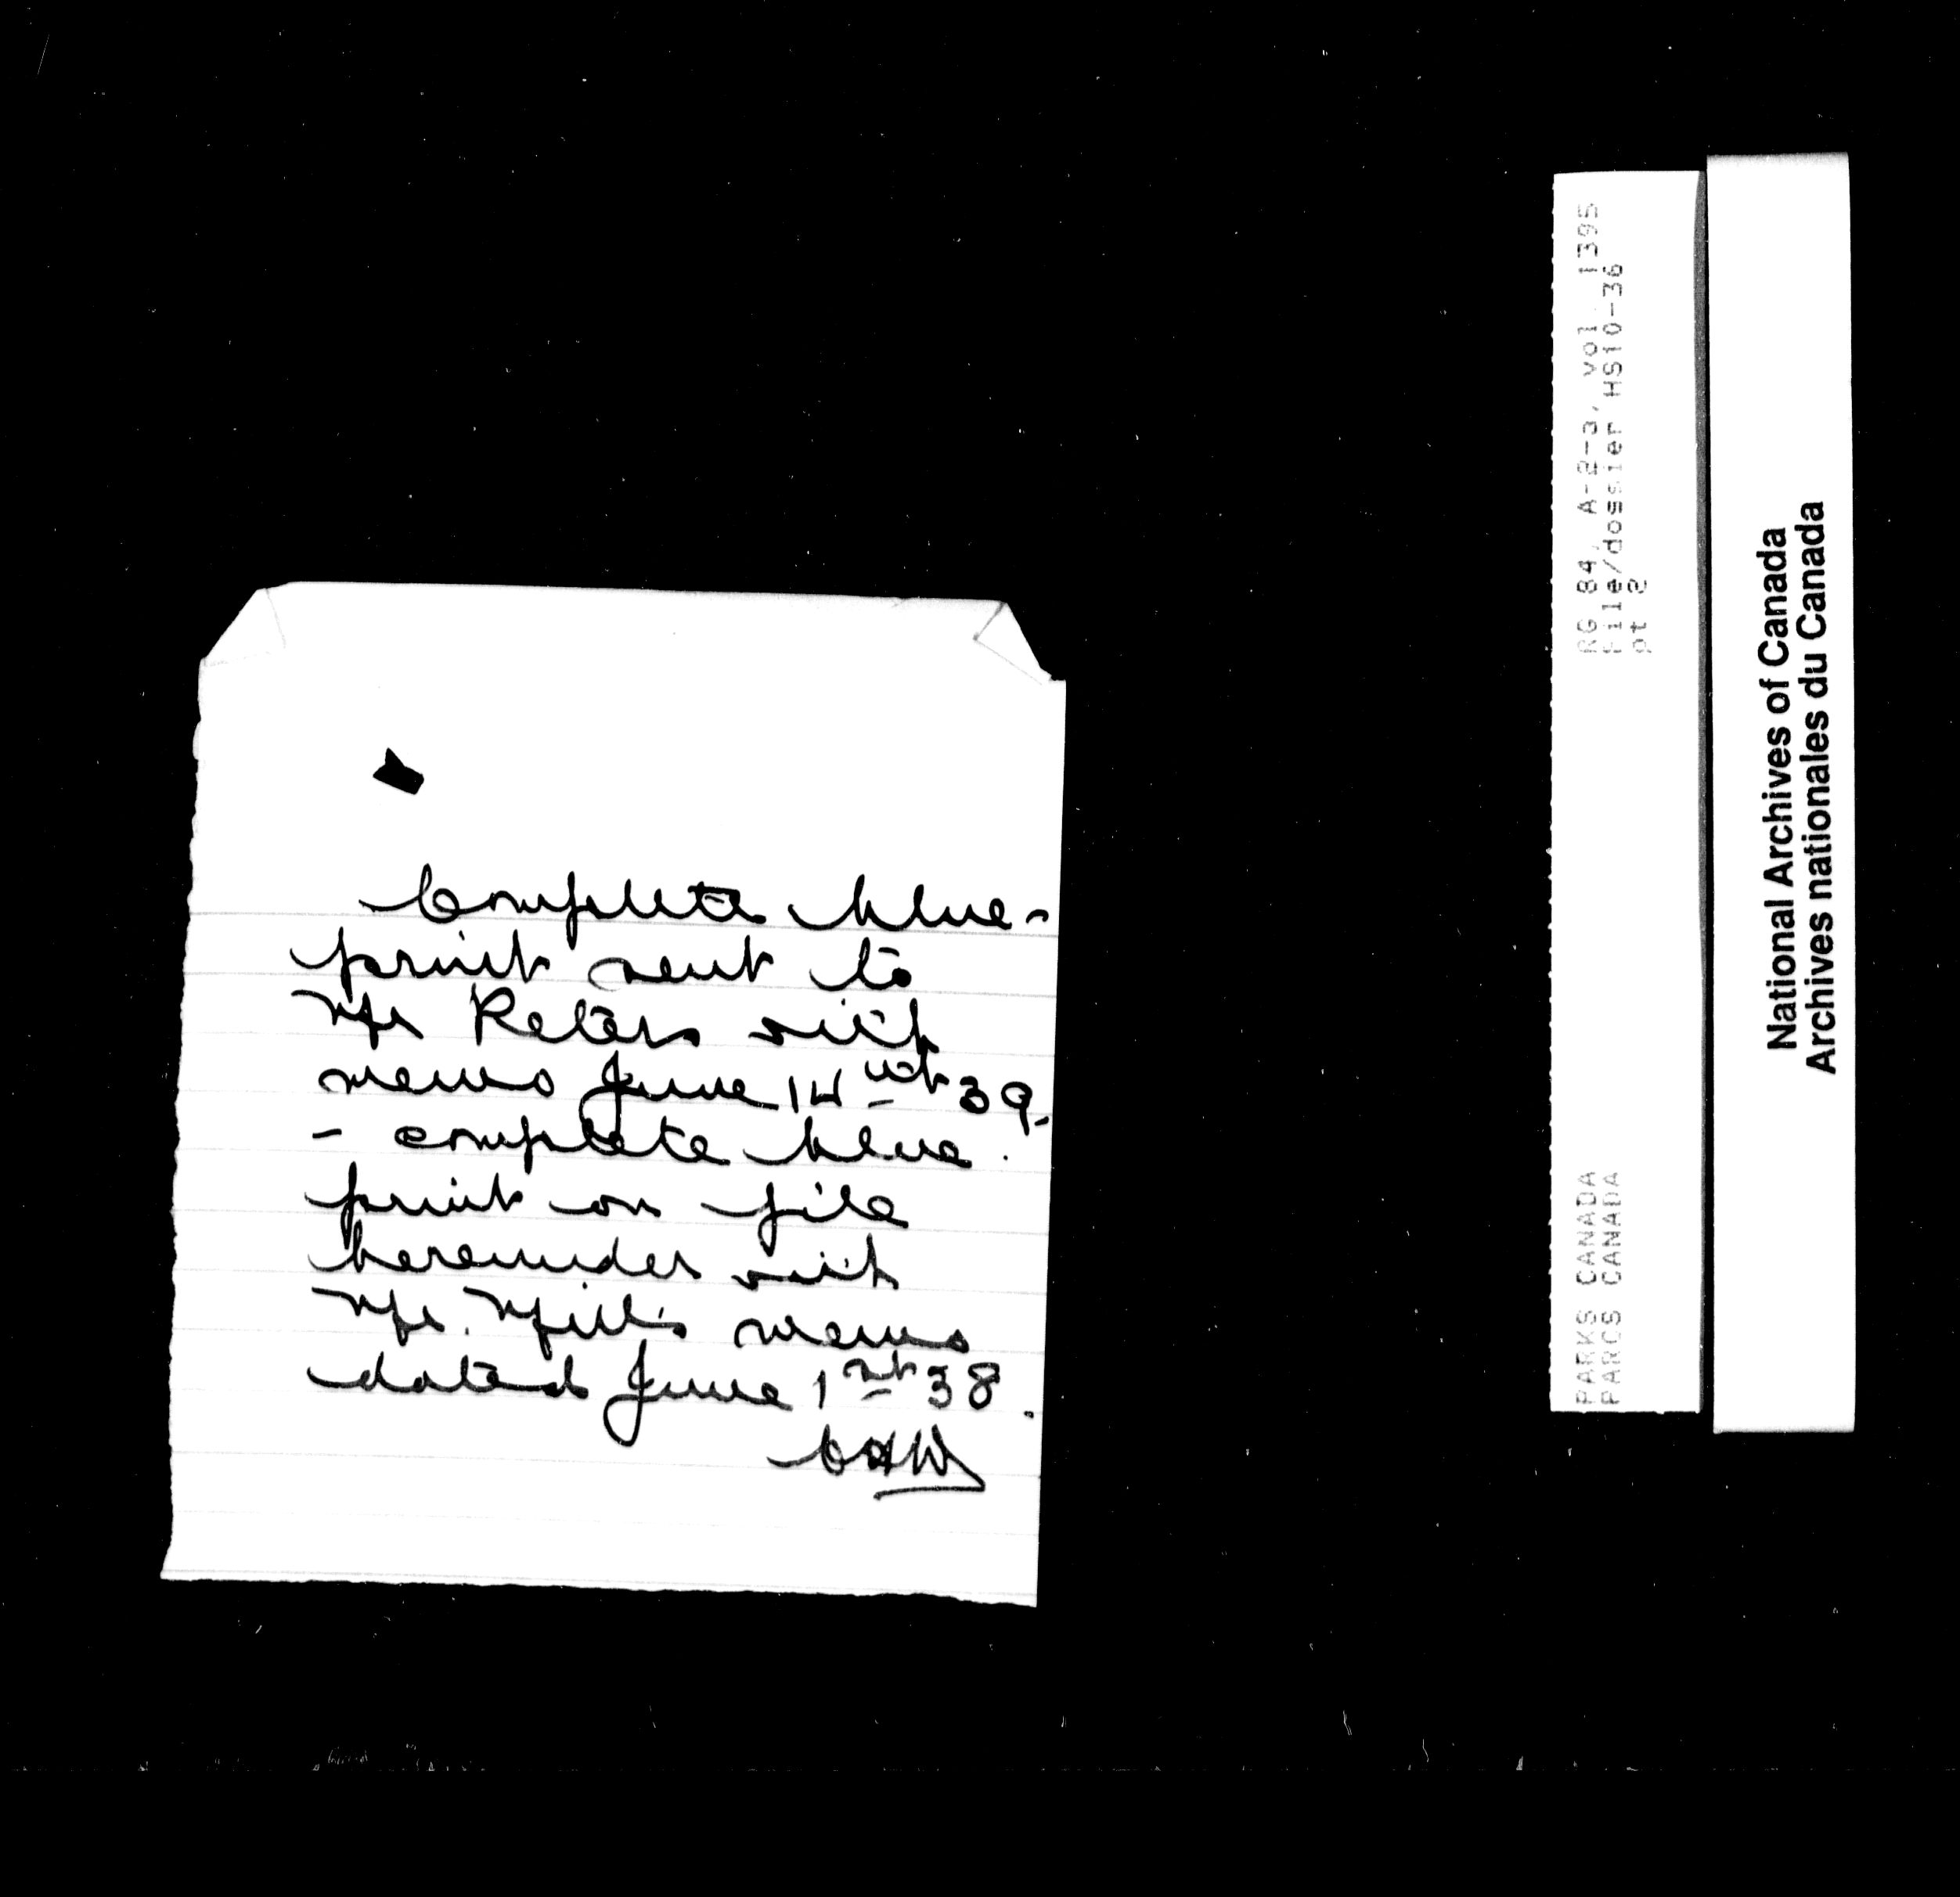 Complete blue-
print sent to
Mr Peters with
memo June 14 39.
- complete blue.
print on file
hereunder with
Mr. Mill's memo
dated June 1st 38.
RG 84, A-2-3, vol. 1395
File/dossier HS10-36
pt 2
PARKS CANADA
PARCS CANADA
National Archives of Canada
Archives nationales du Canada